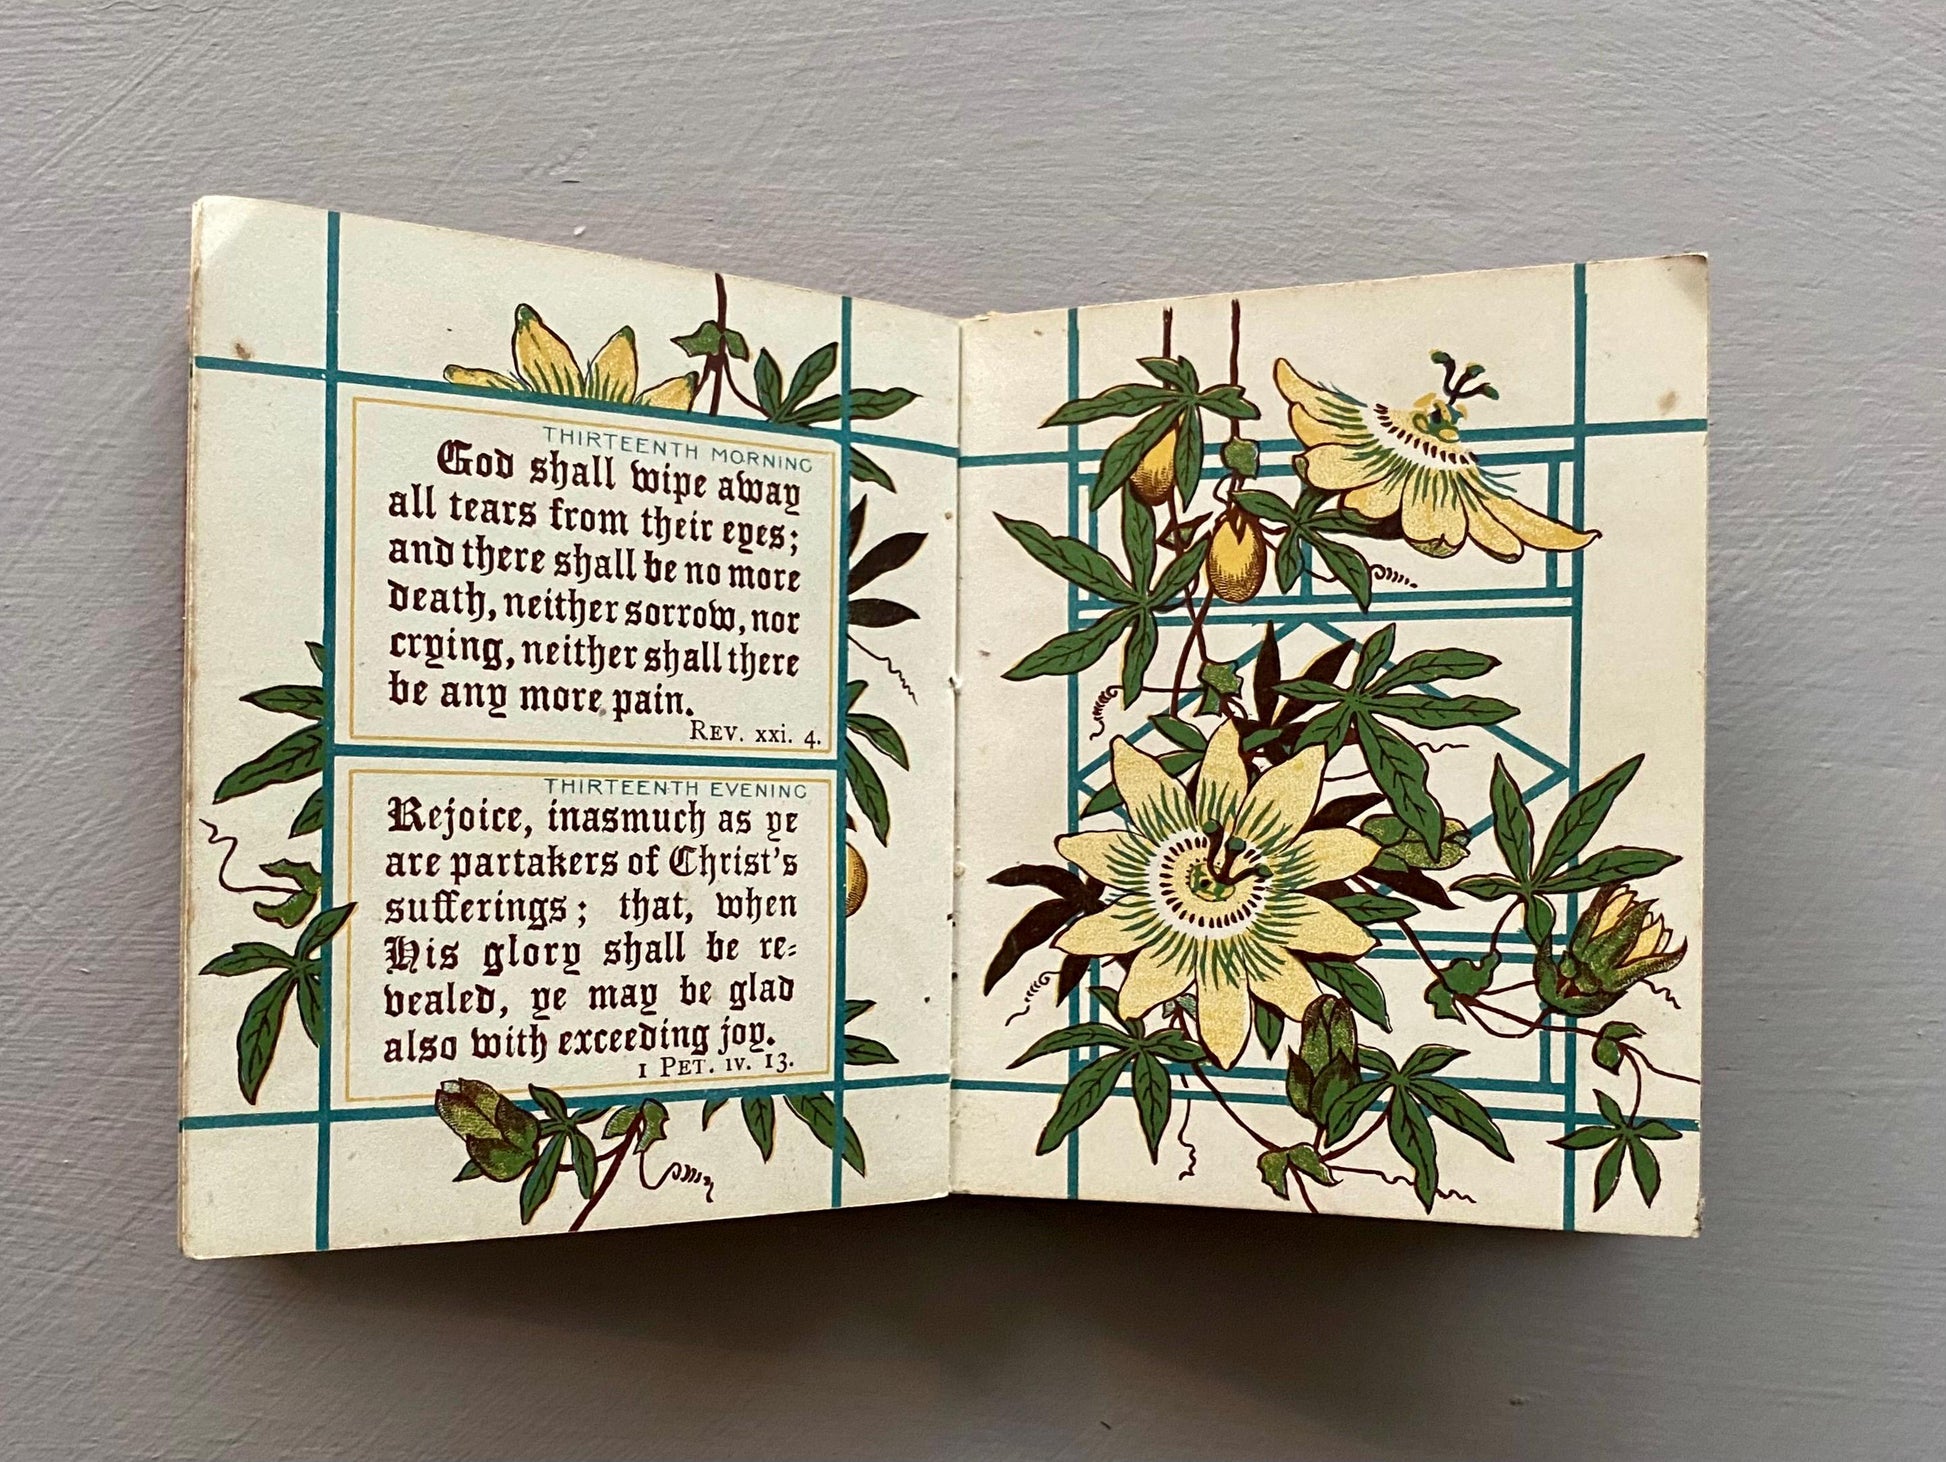 THIRTEENTH MORNING
God shall wipe away
all tears from their eyes;
and there shall be no more
death, neither sorrow, nor
crying, neither shall there
be any more pain.
REV. xxi. 4.
THIRTEENTH EVENING
Rejoice, inasmuch as ye
are partakers of Christ's
sufferings; that, when
His glory shall be re-
vealed, ye may be glad
also with exceeding joy.
1 PET. iv. 13.